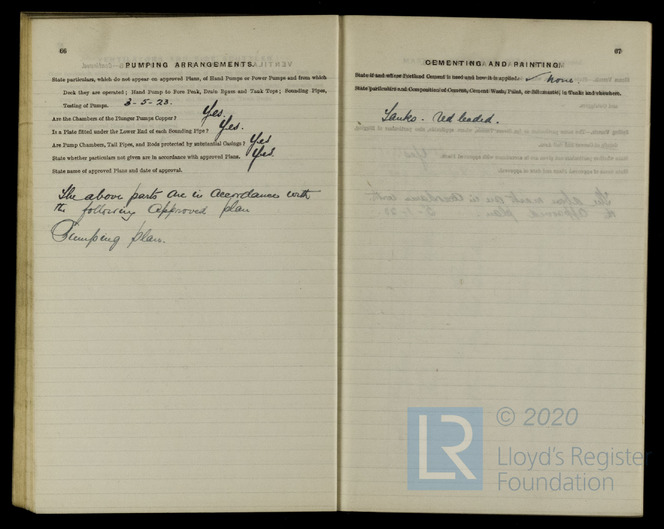 66
PUMPING ARRANGEMENTS.
State particulars, which do not appear on approved Plans, of Hand Pumps or Power Pumps and from which
Deck they are operated; Hand Pump to Fore Peak, Drain Spaces and Tank Tops; Sounding Pipes,
Testing of Pumps. 3-5-23.
Are the Chambers of the Plunger Pumps Copper? Yes.
Is a Plate fitted under the Lower End of each Sounding Pipe? Yes.
Are Pump Chambers, Tail Pipes, and Rods protected by substantial Casings? Yes
State whether particulars not given are in accordance with approved Plans. Yes
State name of approved Plans and date of approval.
The above parts are in accordance with
the following approved plan
Pumping plan.
67
CEMENTING AND PAINTING.
State if and where Portland Cement is used and how it is applied. ✓ None.
State particulars and Composition of Cement, Cement Wash, Paint, or Bitumastic, in Tanks and elsewhere.
Tanks - red leaded.
© 2020
LR
Lloyd's Register
Foundation